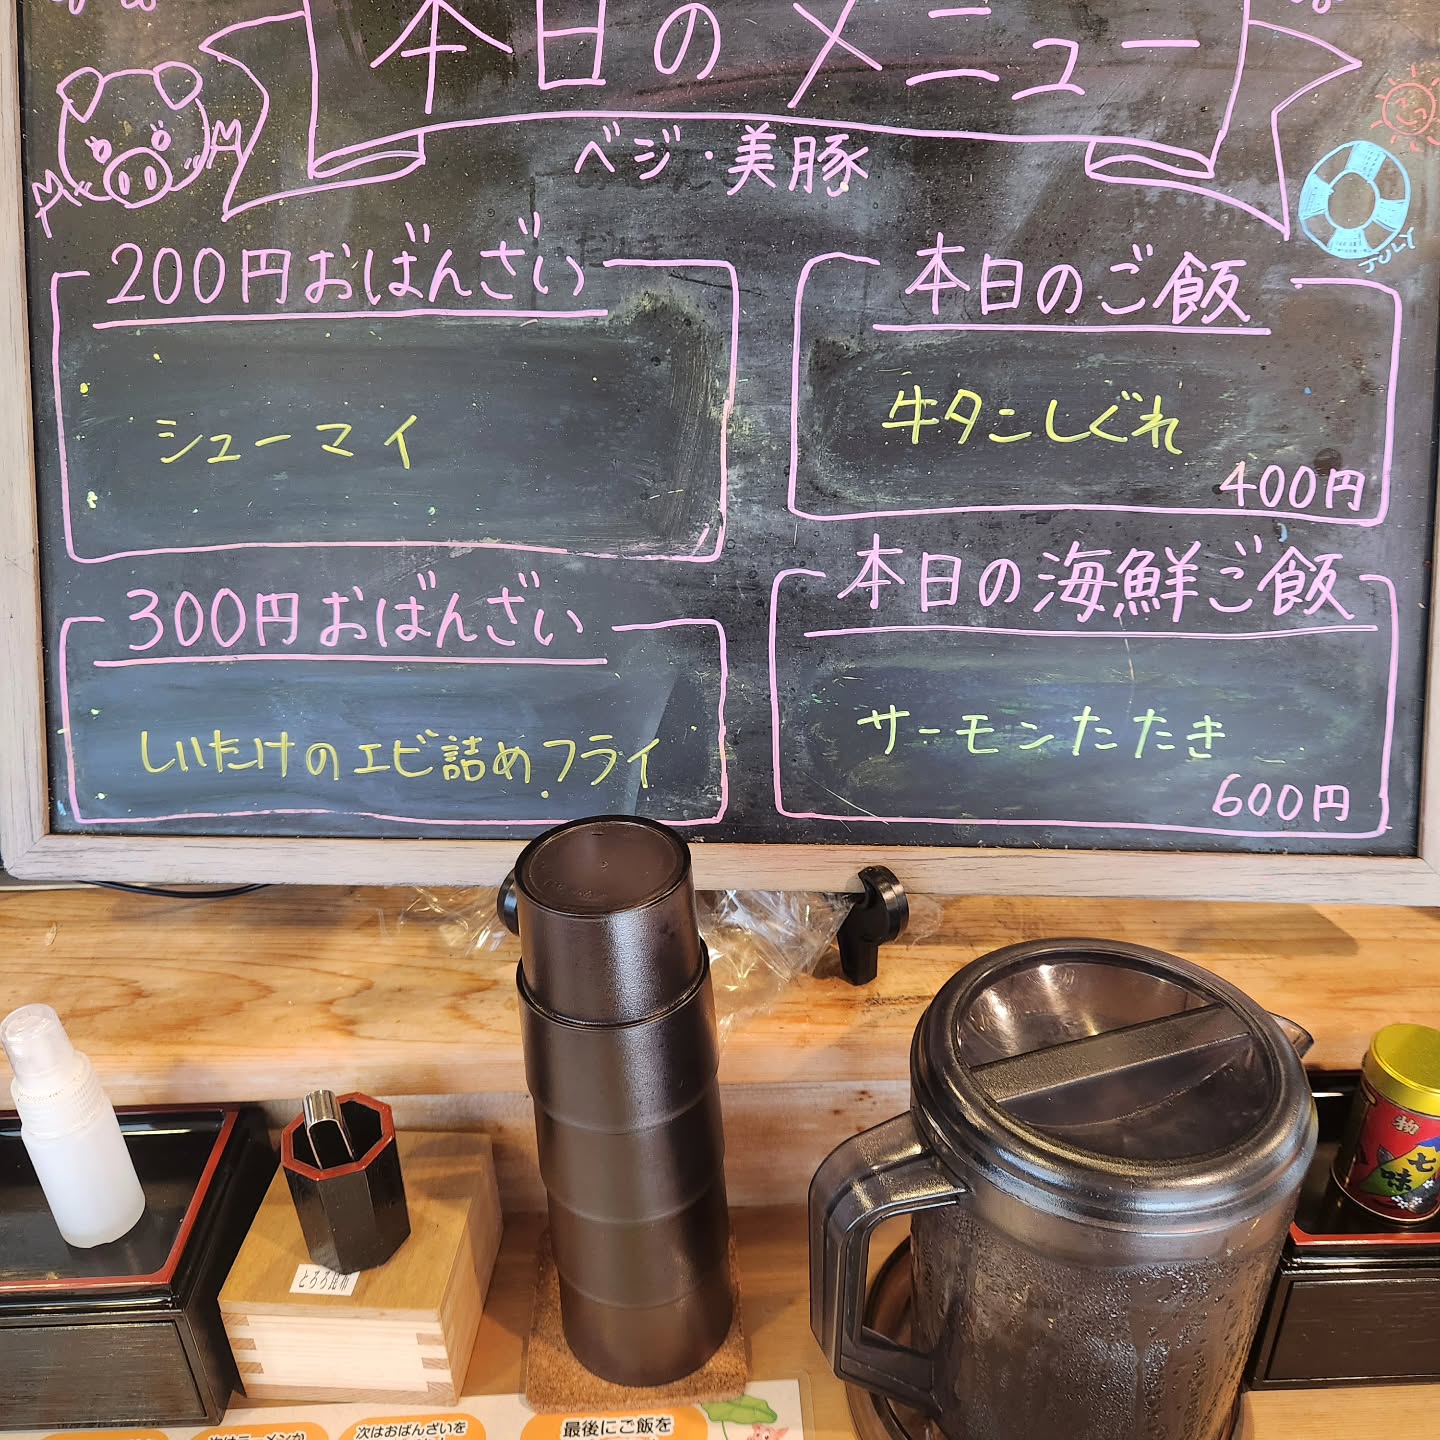 本日のメニュー
ベジ・美豚
JULY
200円おばんざい
シューマイ
本日のご飯
牛タンしぐれ
400円
300円おばんざい
しいたけのエビ詰めフライ
本日の海鮮ご飯
サーモンたたき
600円
とろろ昆布
七味
次はおばんざいを
最後にご飯を